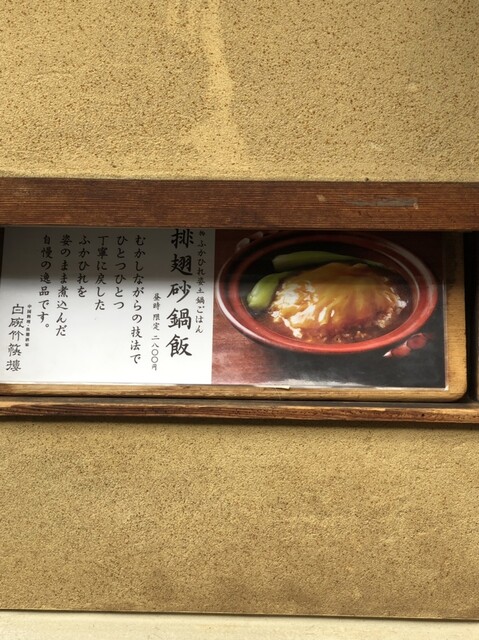 ふかひれ姿土鍋ごはん
排翅砂鍋飯
昼時限定 二八〇〇円
むかしながらの技法で
ひとつひとつ
丁寧に戻した
ふかひれを
姿のまま煮込んだ
自慢の逸品です。
白碗竹筷樓